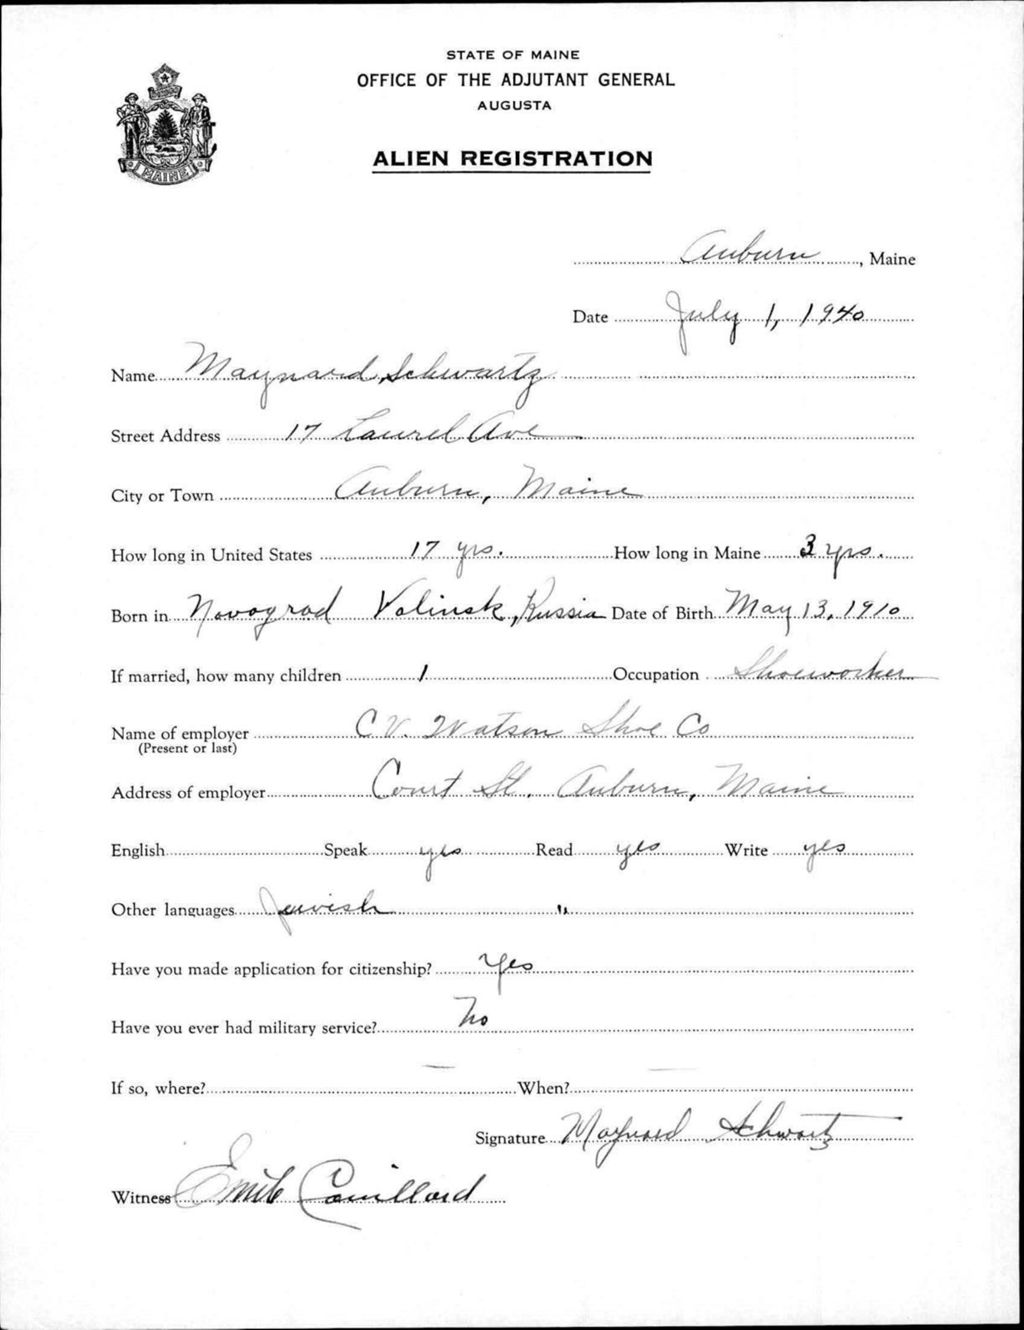 STATE OF MAINE
OFFICE OF THE ADJUTANT GENERAL
AUGUSTA
ALIEN REGISTRATION
MAINE
Auburn, Maine
Date July 1, 1940
Name Maynard Schwartz
Street Address 17 Laurel Ave
City or Town Auburn, Maine
How long in United States 17 yrs. How long in Maine 3 yrs.
Born in Novograd Volinsk, Russia Date of Birth May 13, 1910
If married, how many children 1 Occupation Shoeworker
Name of employer C.V. Watson Shoe Co
(Present or last)
Address of employer Court St. Auburn, Maine
English Speak yes Read yes Write yes
Other languages Jewish "
Have you made application for citizenship? Yes
Have you ever had military service? No
If so, where? — When? —
Signature Maynard Schwartz
Witness Emile Couillard